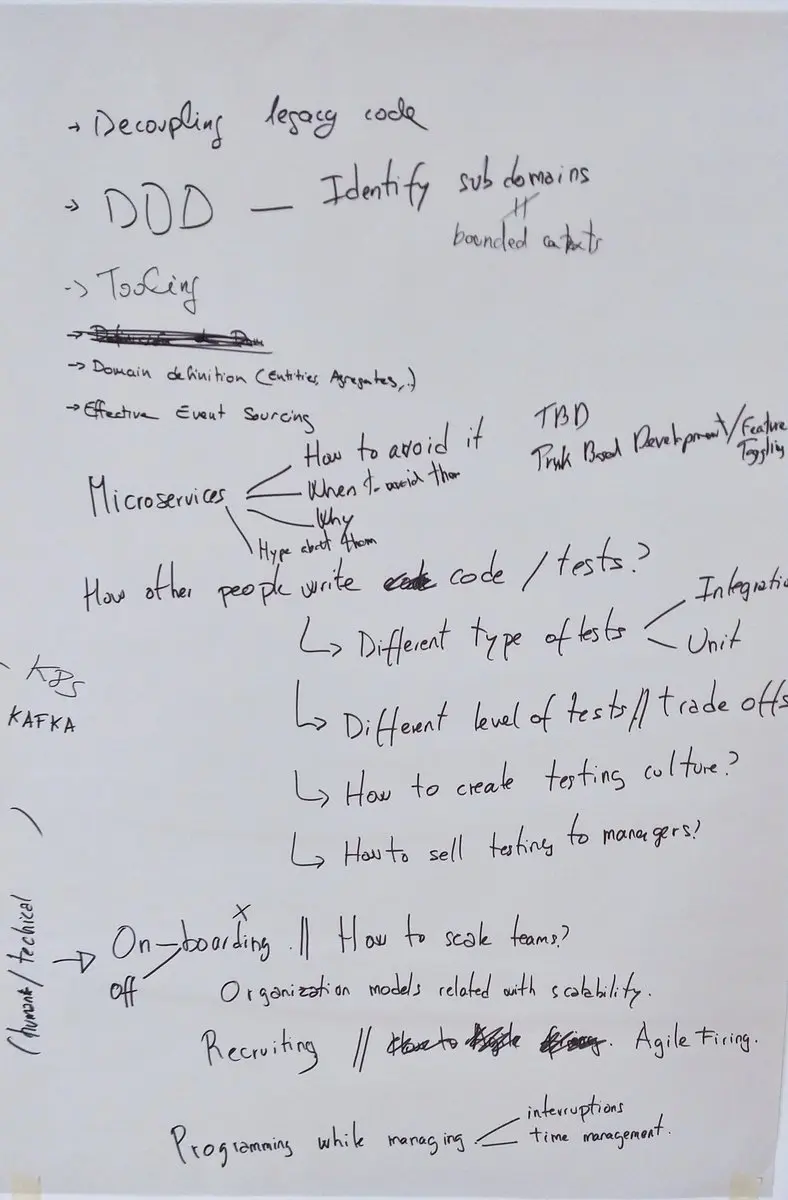 → Decoupling legacy code
→ DDD — Identify subdomains
bounded contexts
→ Tooling
→ Domain definition (Entities, Agregates,..)
→ Effective Event Sourcing
TBD
Trunk Based Development / Feature Toggling
Microservices
How to avoid it
When to avoid them
Why
Hype about them
How other people write code / tests?
↳ Different type of tests
Integratio
Unit
↳ Different level of tests // trade offs
↳ How to create testing culture?
↳ How to sell testing to managers?
K8s
KAFKA
(humank / techical)
→ On-boarding // How to scale teams?
off
Organization models related with scalability.
Recruiting // Agile Firing.
Programming while managing
interruptions
time management.